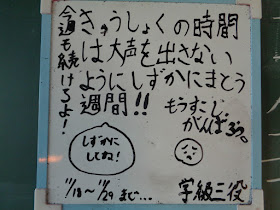 きゅうしょくの時間
は大声を出さない
ようにしずかにまとう
週間!!
今週も続けろよ!
もうすこし
がんばろう。
しずかに
してね!
11/18〜11/29まで...
学級三役